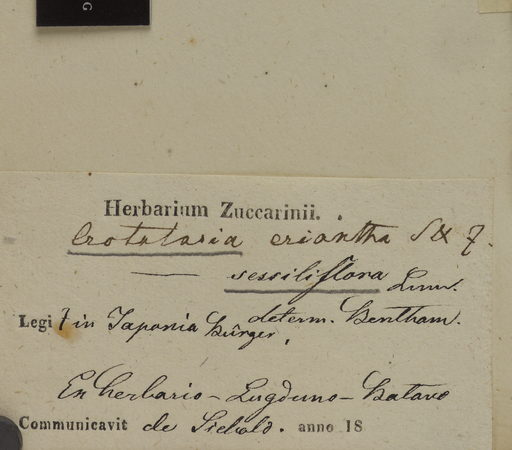 G
Herbarium Zuccarinii.
Crotalaria eriantha S & Z.
— sessiliflora Linn.
determ. Bentham.
Legi t in Japonia Bürger,
Ex herbario - Lugduno - Batavo
Communicavit de Siebold. anno 18